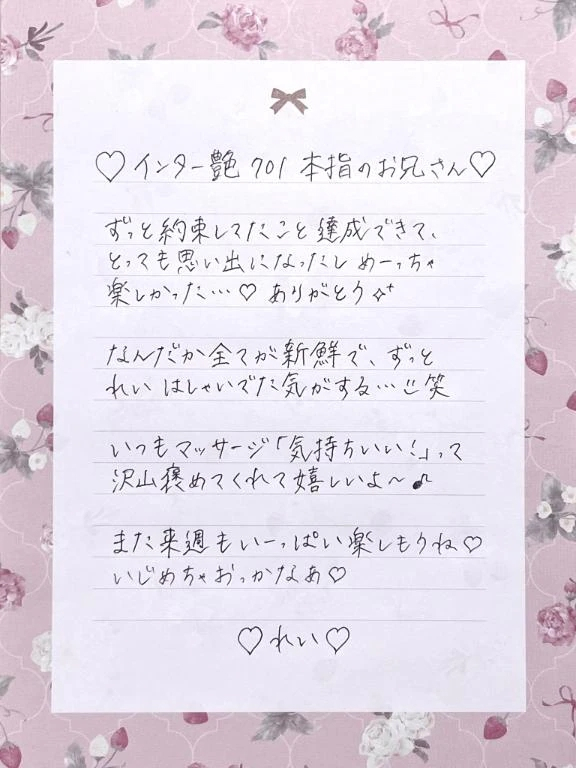 ♡インター艶 701 本指のお兄さん♡
ずっと約束してたこと達成できて、
とっても思い出になったし めーっちゃ
楽しかった…♡ ありがとう✧⁺
なんだか全てが新鮮で、ずっと
れい はしゃいでた気がする…笑
いつもマッサージ「気持ちいい!」って
沢山褒めてくれて嬉しいよ〜♪
また来週もいーっぱい楽しもうね♡
いじめちゃおっかなあ♡
♡れい♡